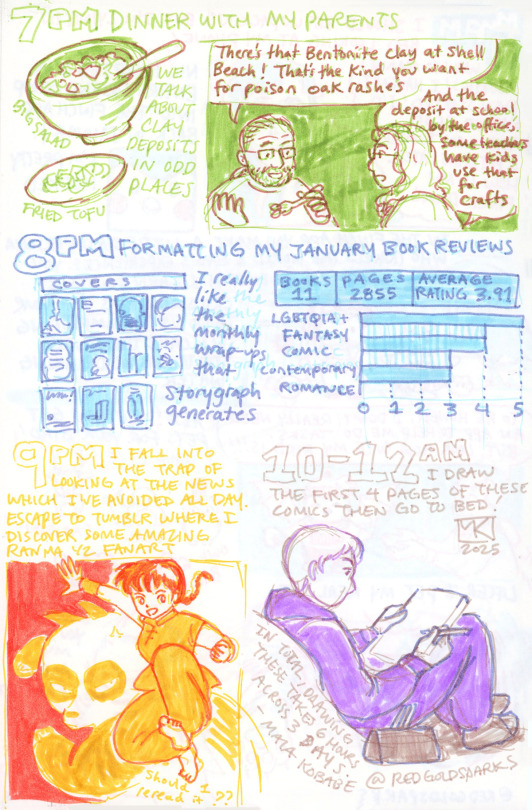 7PM DINNER WITH MY PARENTS
BIG SALAD
FRIED TOFU
WE
TALK
ABOUT
CLAY
DEPOSITS
IN ODD
PLACES
There's that Bentonite clay at Shell
Beach! That's the kind you want
for poison oak rashes
And the
deposit at school
by the office,
some teachers
have kids
use that
for
crafts
8PM FORMATTING MY JANUARY BOOK REVIEWS
COVERS
I really
like
the
monthly
wrap-ups
that
Storygraph
generates
BOOKS
11
PAGES
2855
AVERAGE
RATING 3.91
LGBTQIA+
FANTASY
COMIC
Contemporary
ROMANCE
0 1 2 3 4 5
9PM I FALL INTO
THE TRAP OF
LOOKING AT THE NEWS
WHICH I'VE AVOIDED ALL DAY.
ESCAPE TO TUMBLR WHERE I
DISCOVER SOME AMAZING
RANMA 1/2 FANART
should I
reread it??
10-12AM
I DRAW
THE FIRST 4 PAGES OF THESE
COMICS THEN GO TO BED!
MK
2025
IN TOTAL, DRAWING
THESE TAKES
HOURS
ACROSS 3
DAYS.
- MAIA KOBABE
@REDGOLDSPARKS